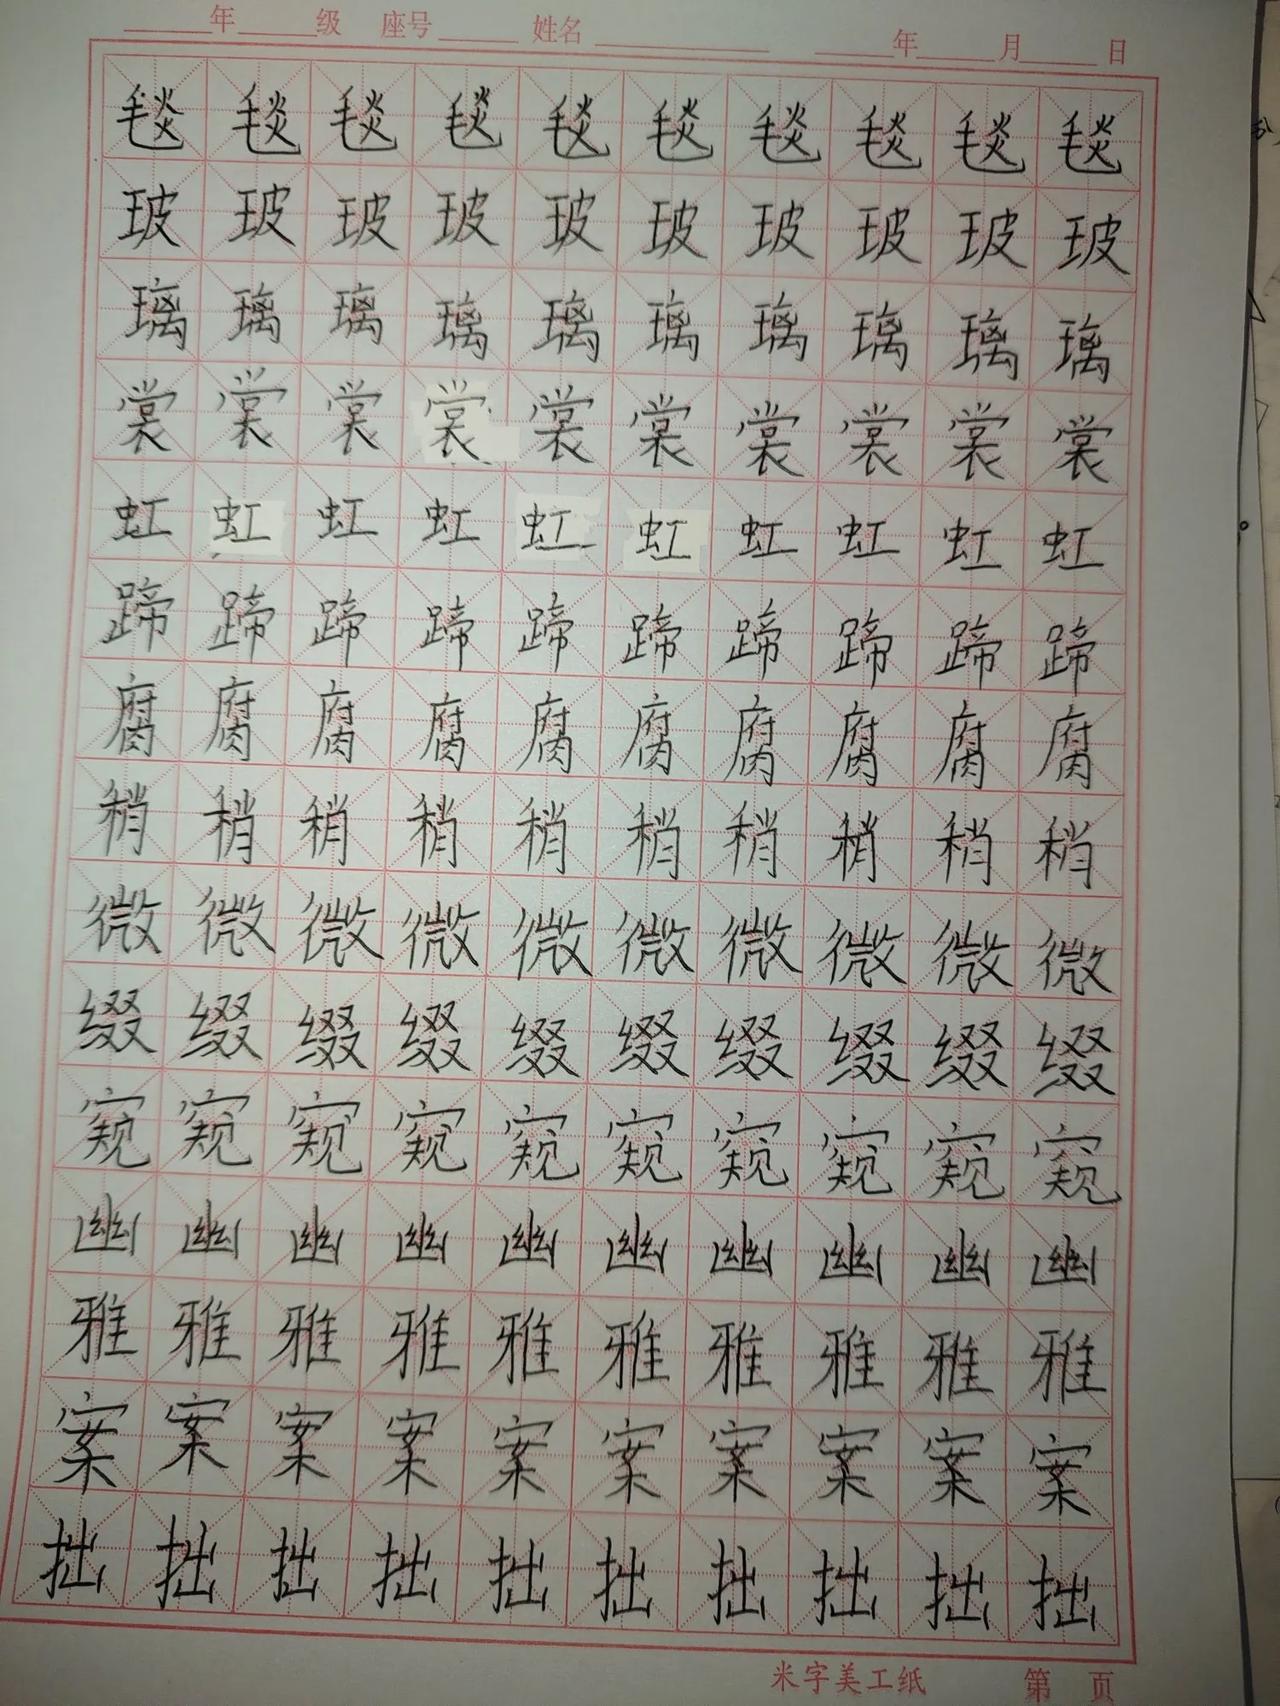 年 级 座号 姓名 年 月 日
毯 毯 毯 毯 毯 毯 毯 毯 毯 毯
玻 玻 玻 玻 玻 玻 玻 玻 玻 玻
璃 璃 璃 璃 璃 璃 璃 璃 璃 璃
裳 裳 裳 裳 裳 裳 裳 裳 裳 裳
虹 虹 虹 虹 虹 虹 虹 虹 虹 虹
蹄 蹄 蹄 蹄 蹄 蹄 蹄 蹄 蹄 蹄
腐 腐 腐 腐 腐 腐 腐 腐 腐 腐
稍 稍 稍 稍 稍 稍 稍 稍 稍 稍
微 微 微 微 微 微 微 微 微 微
缀 缀 缀 缀 缀 缀 缀 缀 缀 缀
窥 窥 窥 窥 窥 窥 窥 窥 窥 窥
幽 幽 幽 幽 幽 幽 幽 幽 幽 幽
雅 雅 雅 雅 雅 雅 雅 雅 雅 雅
案 案 案 案 案 案 案 案 案 案
拙 拙 拙 拙 拙 拙 拙 拙 拙 拙
米字美工纸 第 页